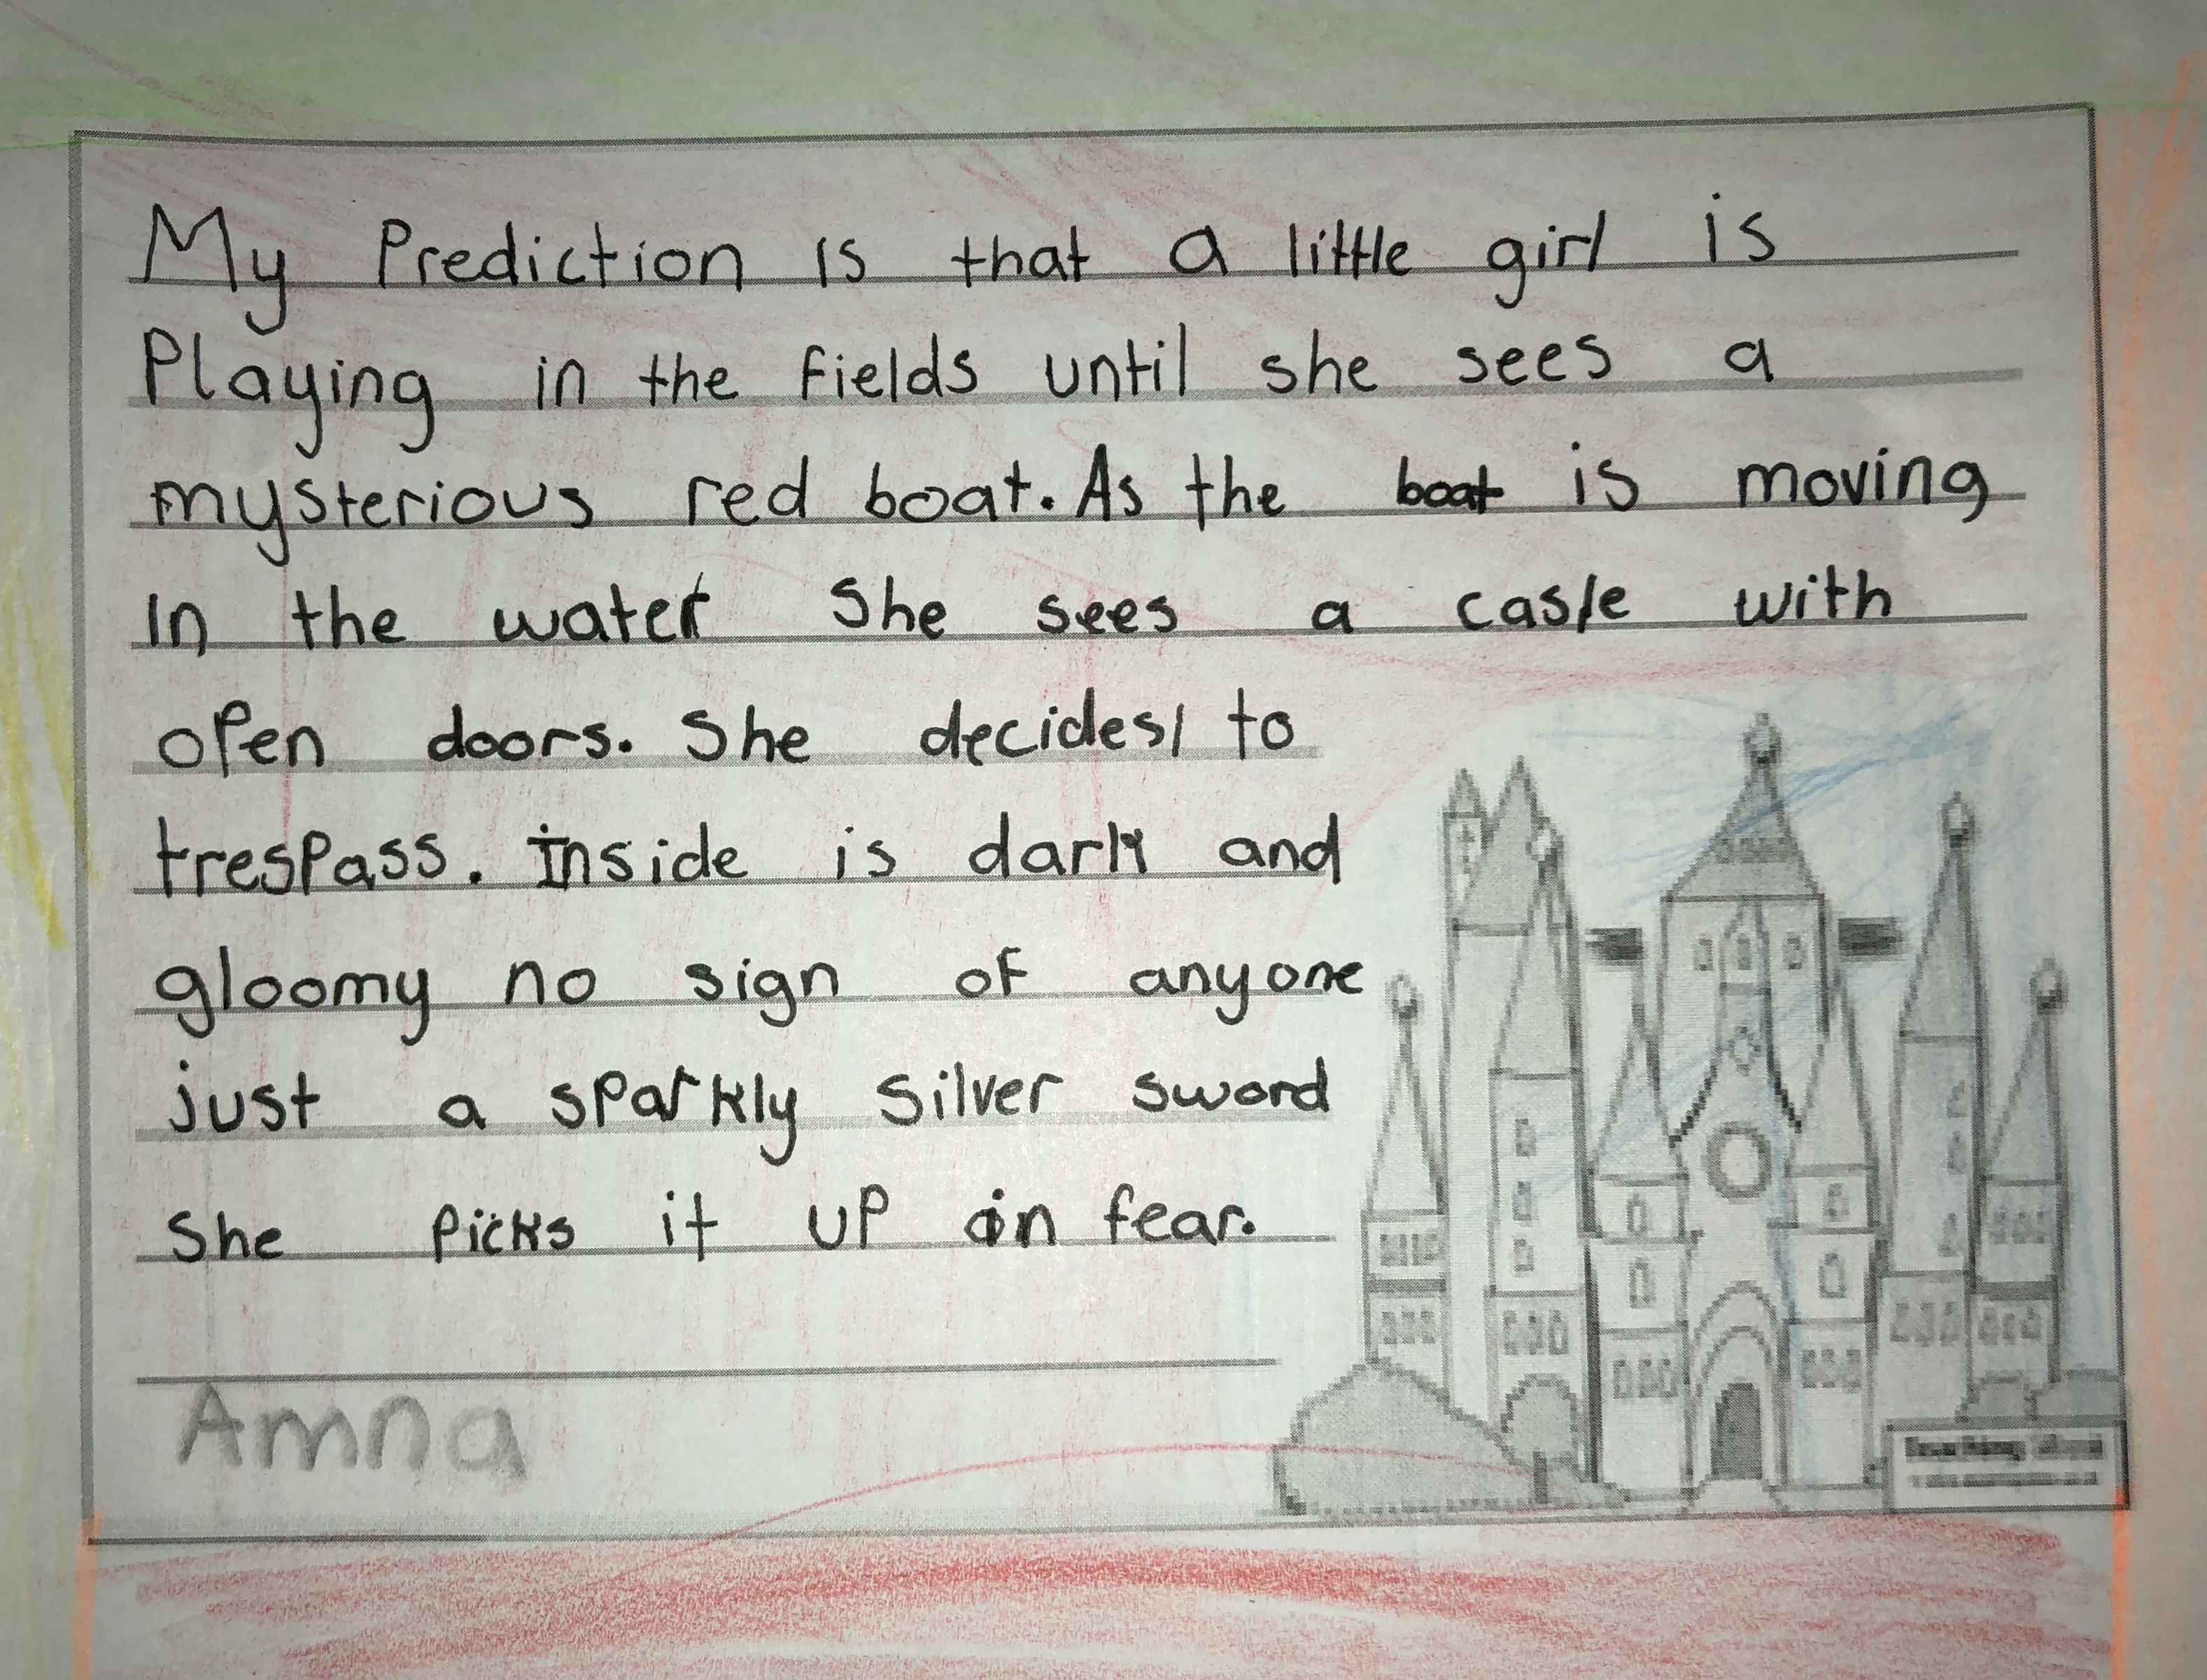 My Prediction is that a little girl is
Playing in the fields until she sees a
mysterious red boat. As the boat is moving
in the water she sees a casle with
open doors. She decides to
trespass. Inside is dark and
gloomy no sign of anyone
just a sparkly silver sword
She picks it up in fear.
Amna